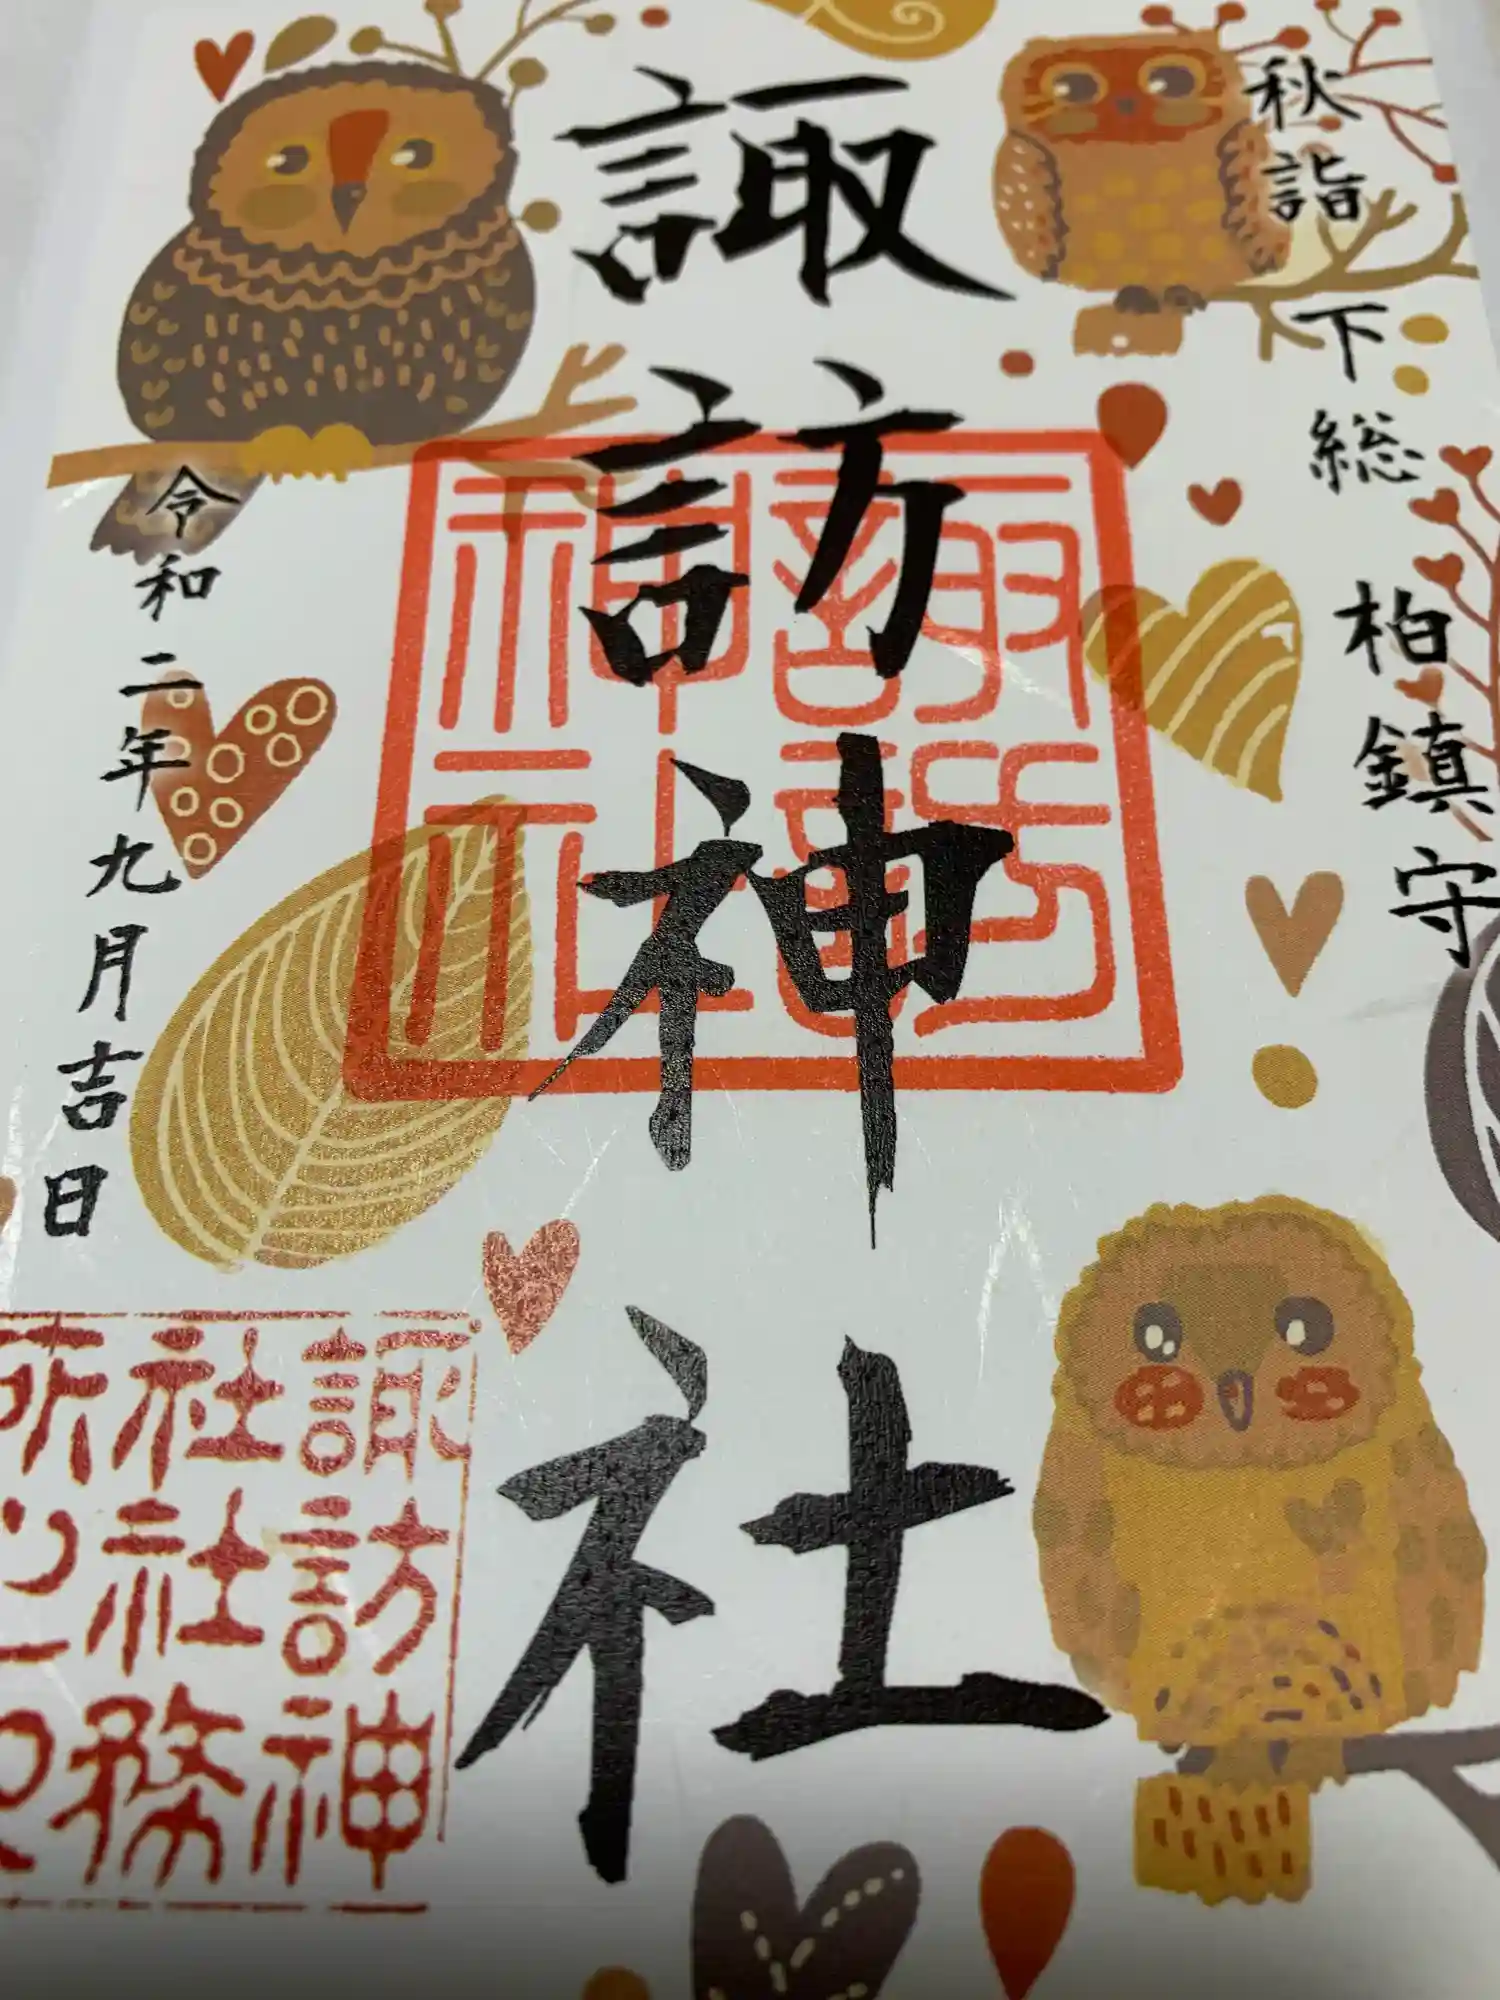 秋詣 下総 柏鎮守
諏訪神社
令和二年九月吉日
諏訪
神社
諏訪神
社社務
所之印